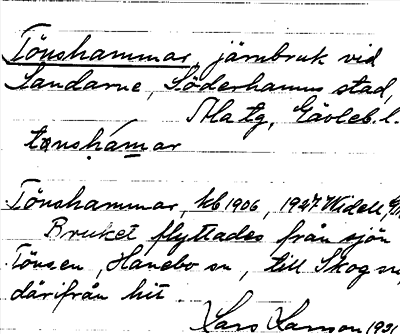 Tönshammar, järnbruk vid
Sandarne, Söderhamns stad,
Ala tg, Gävleb. l.
tǫnshámar
Tönshammar, kb 1906, 1927 Widell,
Bruket flyttades från sjön
Tönsen, Hanebo sn, till Skog sn,
därifrån hit
Lars Larsson 1931